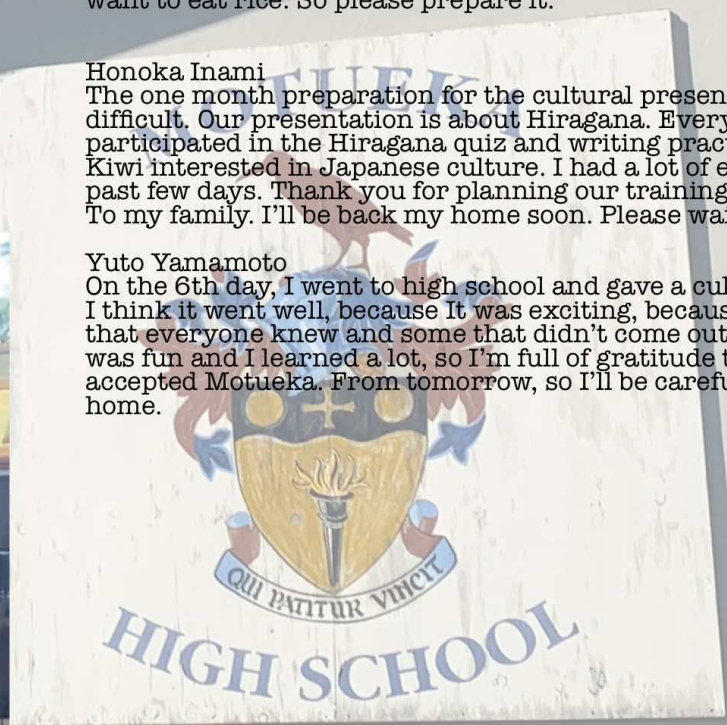 want to eat rice. So please prepare it.
Honoka Inami
The one month preparation for the cultural presen
difficult. Our presentation is about Hiragana. Every
participated in the Hiragana quiz and writing prac
Kiwi interested in Japanese culture. I had a lot of e
past few days. Thank you for planning our training
To my family. I'll be back my home soon. Please wa
Yuto Yamamoto
On the 6th day, I went to high school and gave a cul
I think it went well, because It was exciting, becaus
that everyone knew and some that didn't come out
was fun and I learned a lot, so I'm full of gratitude t
accepted Motueka. From tomorrow, so I'll be carefu
home.
MOTUEKA
QUI PATITUR VINCIT
HIGH SCHOOL